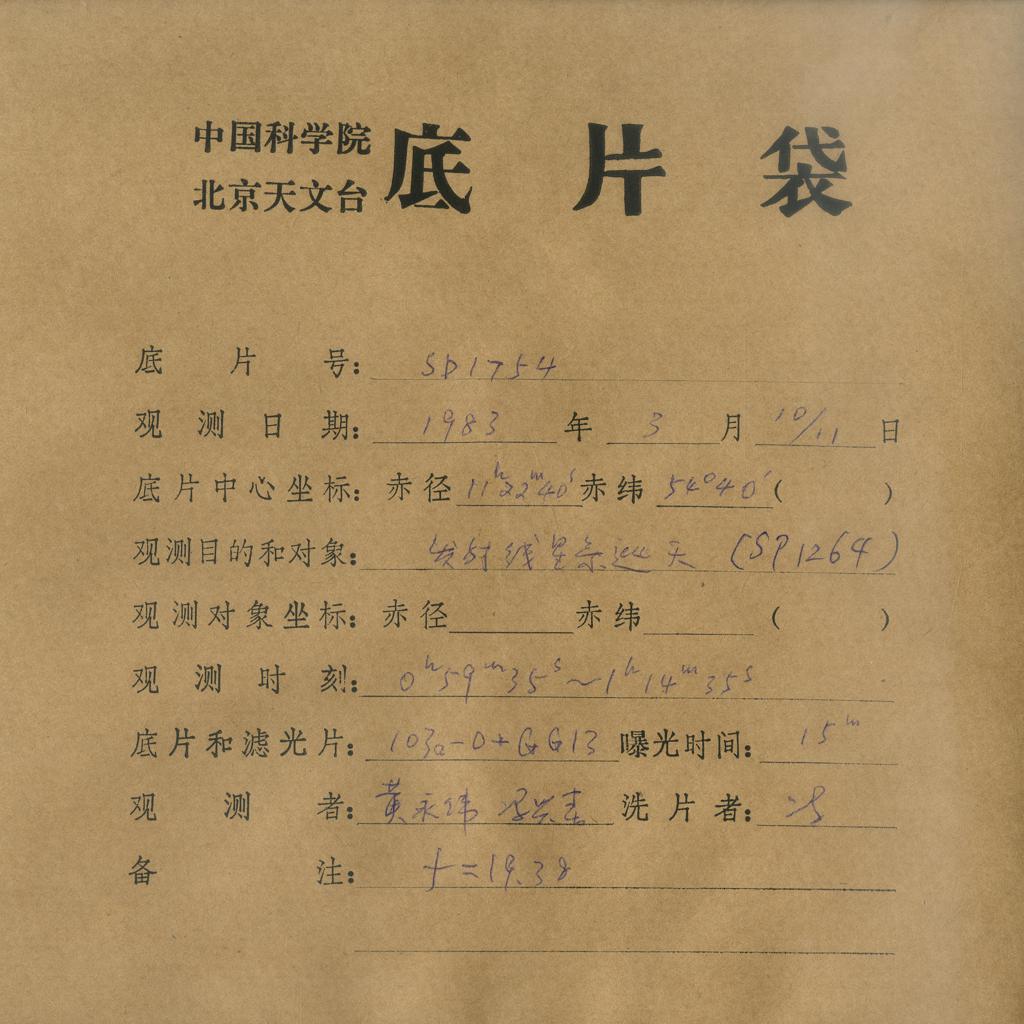 中国科学院
北京天文台
底片袋
底片号： SP1754
观测日期： 1983 年 3 月 10/11 日
底片中心坐标：赤径 11ʰ22ᵐ40ˢ 赤纬 54°40′ ( )
观测目的和对象： 发射线星系巡天 (SP1264)
观测对象坐标：赤径 赤纬 ( )
观测时刻： 0ʰ59ᵐ35ˢ～1ʰ14ᵐ35ˢ
底片和滤光片： 103a-O+GG13 曝光时间： 15ᵐ
观测者： 黄永纬 洗片者：
备注： f=19.38